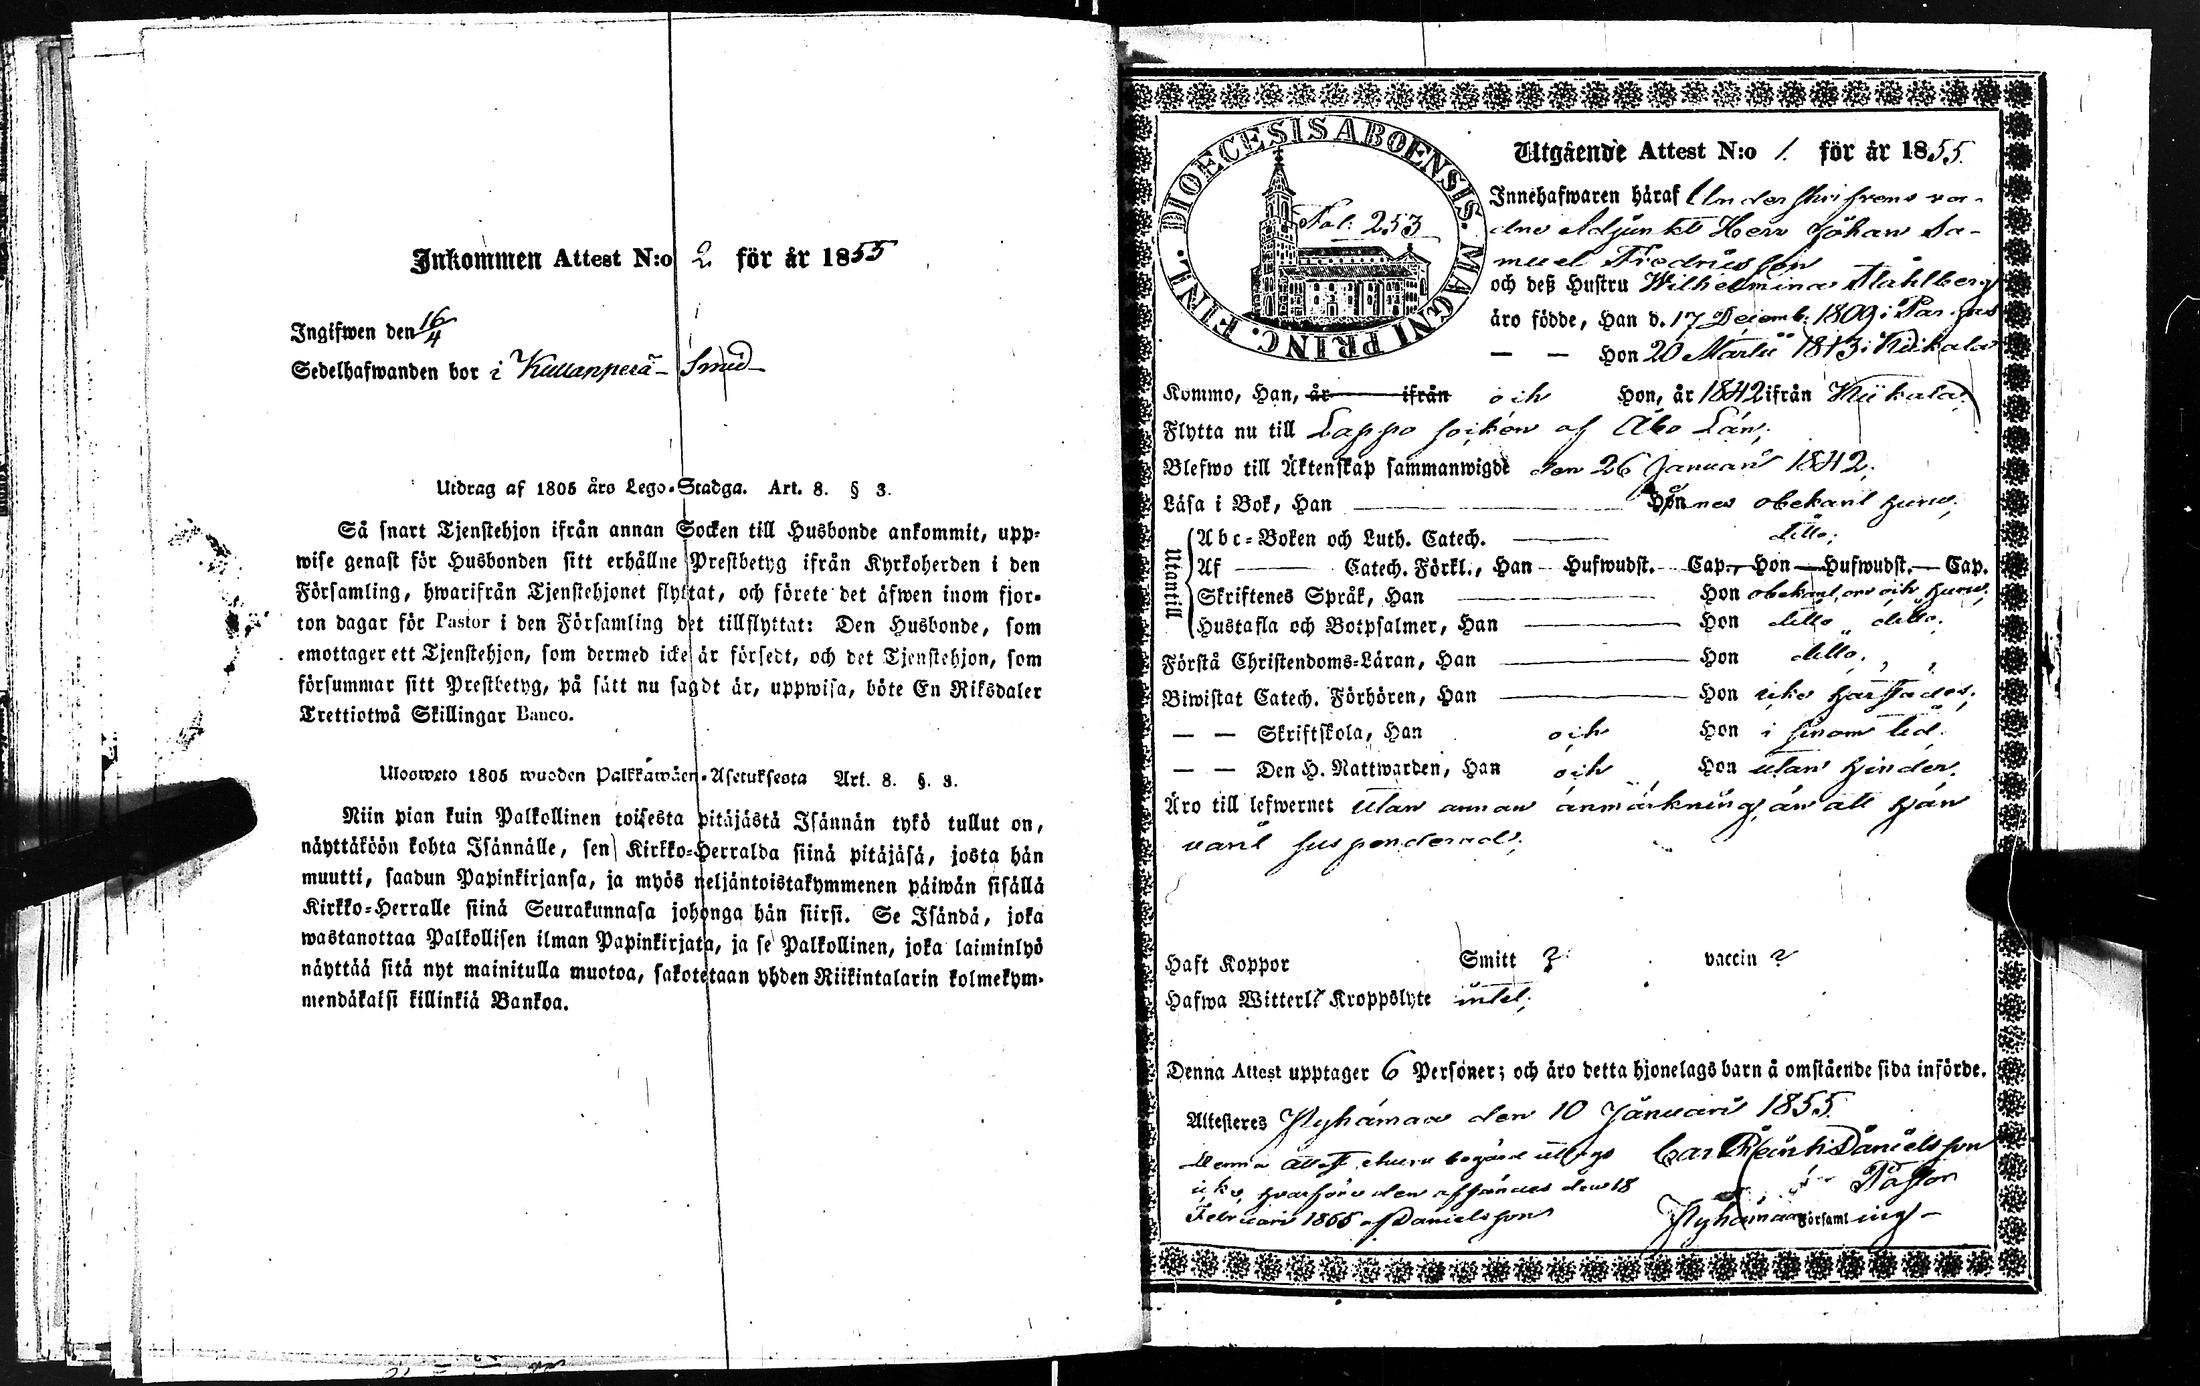 Inkommen Attest N:o 2 för år 1855
Ingifwen den 16/4
Sedelhafwanden bor i Kullanperä - Smed
Utdrag af 1805 års Lego-Stadga. Art. 8. § 3.
Så snart Tjenstehjon ifrån annan Socken till Husbonde ankommit, upp-
wise genast för Husbonden sitt erhållne Prestbetyg ifrån Kyrkoherden i den
Församling, hwarifrån Tjenstehjonet flyttat, och förete det äfwen inom fjor-
ton dagar för Pastor i den Församling det tillflyttat: Den Husbonde, som
emottager ett Tjenstehjon, som dermed icke är försedt, och det Tjenstehjon, som
försummar sitt Prestbetyg, på sätt nu sagdt är, uppwisa, böte En Riksdaler
Trettiotwå Skillingar Banco.
Ulosweto 1805 wuoden Palkkawäen-Asetuksesta Art. 8. §. 3.
Niin pian kuin Palkollinen toisesta pitäjästä Isännän tykö tullut on,
näyttäköön kohta Isännälle, sen Kirkko-Herralda siinä pitäjäsä, josta hän
muutti, saadun Papinkirjansa, ja myös neljäntoistakymmenen päiwän sisällä
Kirkko-Herralle siinä Seurakunnasa johonga hän siirsi. Se Isändä, joka
wastanottaa Palkollisen ilman Papinkirjata, ja se Palkollinen, joka laiminlyö
näyttää sitä nyt mainitulla muotoa, sakotetaan yhden Riikintalarin kolmekym-
mendäkaksi killinkiä Bankoa.
DIOECESIS ABOENSIS. MAGNI PRINC. FINL.
Fol. 253
Utgående Attest N:o 1. för år 1855.
Innehafwaren häraf Underskrifvens va-
dne Adjunkt Herr Johan Sa-
muel Fredriksson
och deß Hustru Wilhelmina Ståhlberg
äro födde, Han d. 17 Decemb. 1809 i Pargas
— — Hon 20 Martii 1813 i Kiikala
Kommo, Han, år ifrån och Hon, år 1842 ifrån Kiikala
Flytta nu till Lappo socken af Åbo Län,
Blefwo till Äktenskap sammanwigde den 26 Januari 1842.
Läsa i Bok, Han Hon obekant
Utantill
Abc-Boken och Luth. Catech. ditto;
Af Catech. Förkl., Han Hufwudst. Cap., Hon Hufwudst. Cap.
Skriftenes Språk, Han Hon obekant
Hustafla och Botpsalmer, Han Hon ditto ditto.
Förstå Christendoms-Läran, Han Hon ditto.
Biwistat Catech. Förhören, Han Hon icke
— — Skriftskola, Han och Hon i sinom tid.
— — Den H. Nattwarden, Han och Hon utan hinder.
Äro till lefwernet utan annan anmärkning, än att han
varit suspenderad.
Haft Koppor Smitt ? vaccin ?
Hafwa Witterl. Kroppslyte intet;
Denna Attest upptager 6 Personer; och äro detta hjonelags barn å omstående sida införde.
Attesteres Pyhämaa den 10 Januari 1855.
Denna attest, ehuru begärd uttogs Carl Danielsson
icke, hvarföre den afsändes den 18 Pastor
Februari 1855 af Danielsson Pyhämaa Församling